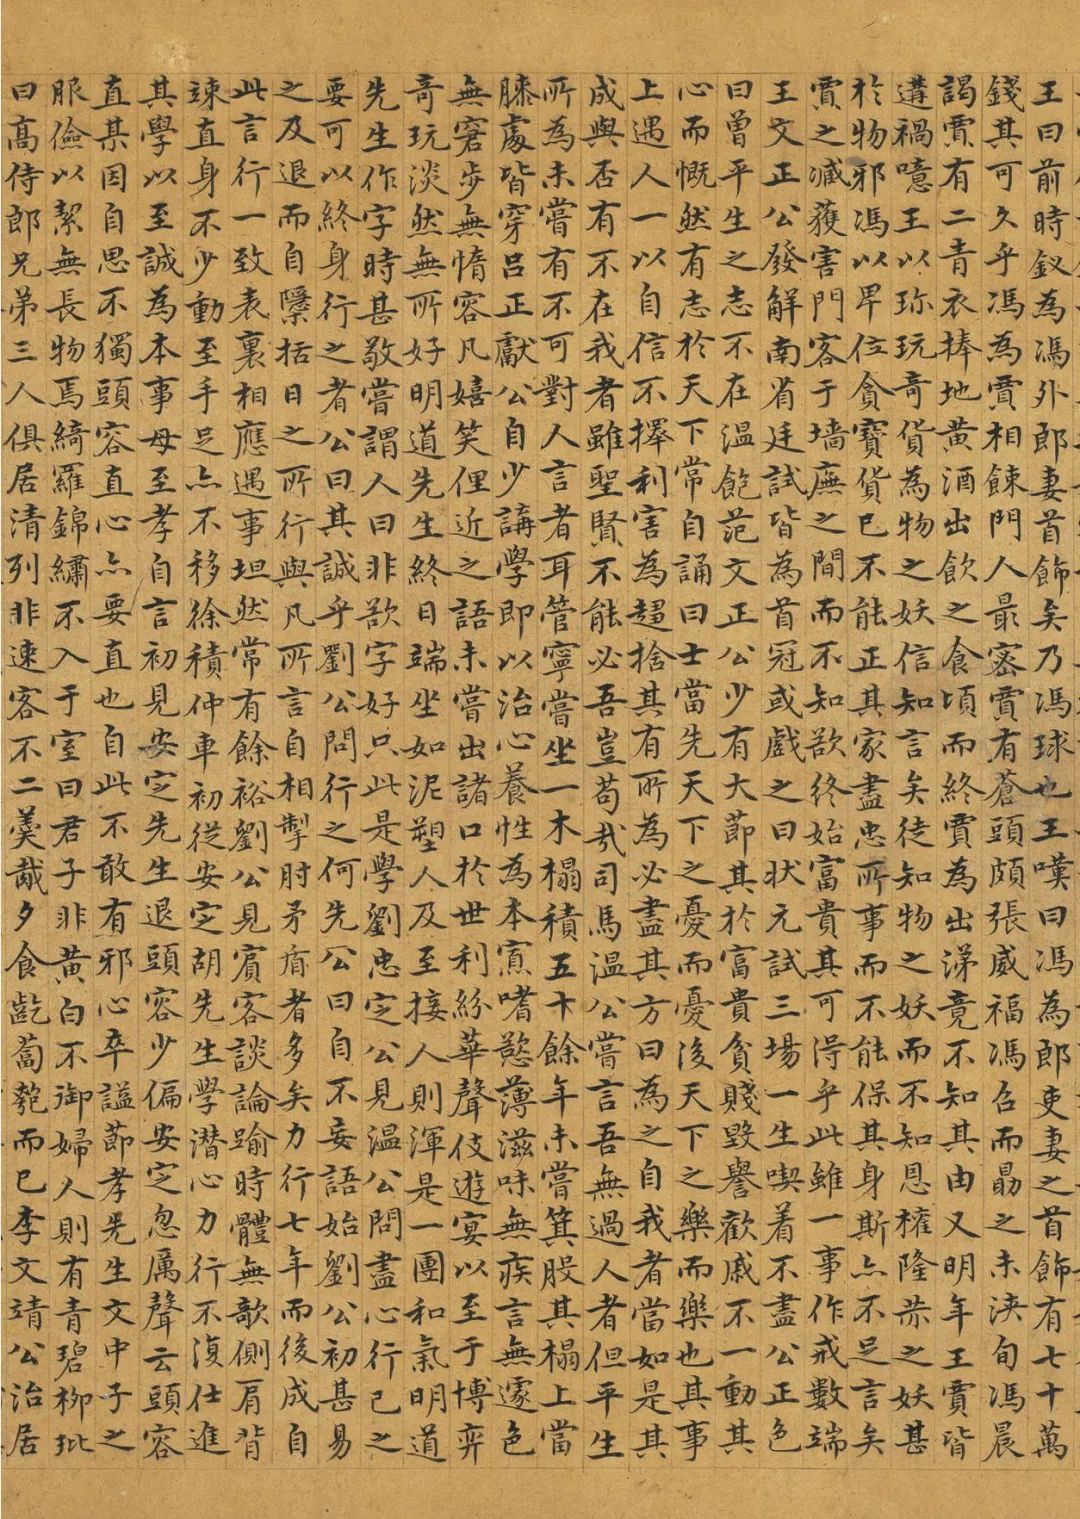 王曰前時釵為馮外郎妻首飾矣乃馮球也王嘆曰馮為郎吏妻之首飾有七十萬
錢其可久乎馮為賈相餗門人最密賈有蒼頭頗張威福馮召而勗之未浹旬馮晨
謁賈有二青衣捧地黃酒出飲之食頃而終賈為出涕竟不知其由又明年王賈皆
遘禍噫王以珎玩奇貨為物之妖信知言矣徒知物之妖而不知恩權隆赤之妖甚
於物邪馮以卑位貪寶貨已不能正其家盡忠所事而不能保其身斯亦不足言矣
賈之臧獲害門客于墻廡之間而不知欲終始富貴其可得乎此雖一事作戒數端
王文正公發解南省廷試皆為首冠或戲之曰狀元試三場一生喫着不盡公正色
曰曾平生之志不在溫飽范文正公少有大節其於富貴貧賤毀譽歡戚不一動其
心而慨然有志於天下常自誦曰士當先天下之憂而憂後天下之樂而樂也其事
上遇人一以自信不擇利害為趨捨其有所為必盡其方曰為之自我者當如是其
成與否有不在我者雖聖賢不能必吾豈苟哉司馬溫公嘗言吾無過人者但平生
所為未嘗有不可對人言者耳管寧嘗坐一木榻積五十餘年未嘗箕股其榻上當
膝處皆穿呂正獻公自少講學即以治心養性為本寡嗜慾薄滋味無疾言無遽色
無窘步無惰容凡嬉笑俚近之語未嘗出諸口於世利紛華聲伎遊宴以至于博弈
奇玩淡然無所好明道先生終日端坐如泥塑人及至接人則渾是一團和氣明道
先生作字時甚敬嘗謂人曰非欲字好只此是學劉忠定公見溫公問盡心行己之
要可以終身行之者公曰其誠乎劉公問行之何先公曰自不妄語始劉公初甚易
之及退而自隱括日之所行與凡所言自相掣肘矛盾者多矣力行七年而後成自
此言行一致表裏相應遇事坦然常有餘裕劉公見賓客談論踰時體無欹側肩背
竦直身不少動至手足亦不移徐積仲車初從安定胡先生學潛心力行不復仕進
其學以至誠為本事母至孝自言初見安定先生退頭容少偏安定忽厲聲云頭容
直某因自思不獨頭容直心亦要直也自此不敢有邪心卒謚節孝先生文中子之
服儉以絜無長物焉綺羅錦繡不入于室曰君子非黃白不御婦人則有青碧柳玭
曰高侍郎兄弟三人俱居清列非速客不二羹胾夕食齕蔔匏而已李文靖公治居